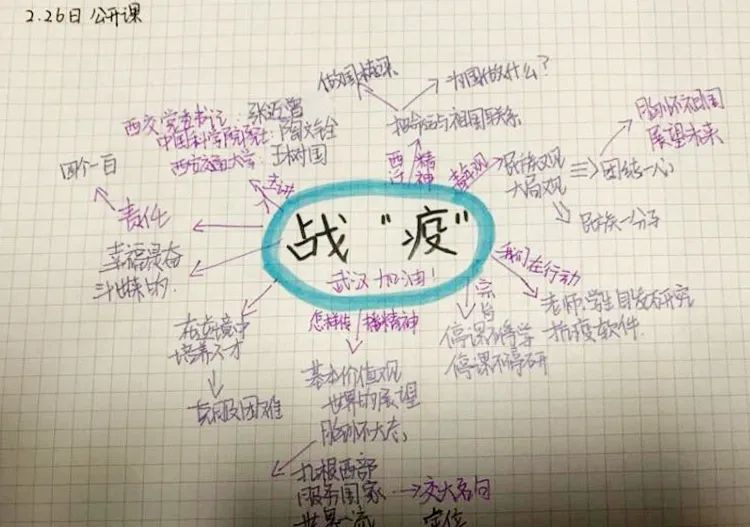 2.26日 公开课
做国精深
为国做什么？
把命运与祖国联系
西迁
精神
西交党委书记：张迈曾
中国科学院院士：陶文铨
西安交通大学 王树国
主讲
四个一百
责任
幸福是奋
斗出来的.
在逆境中
培养人才
克服困难
战“疫”
武汉加油！
怎样传播精神
基本价值观
世界的展望
胸怀大志
扎根西部
服务国家 → 交大名句
世界一流 定位
宗旨
停课不停学
停课不停研
我们在行动
老师.学生自发研究
抗疫软件.
民族观
大局观
团结一心
民族一分子
胸怀祖国
展望未来